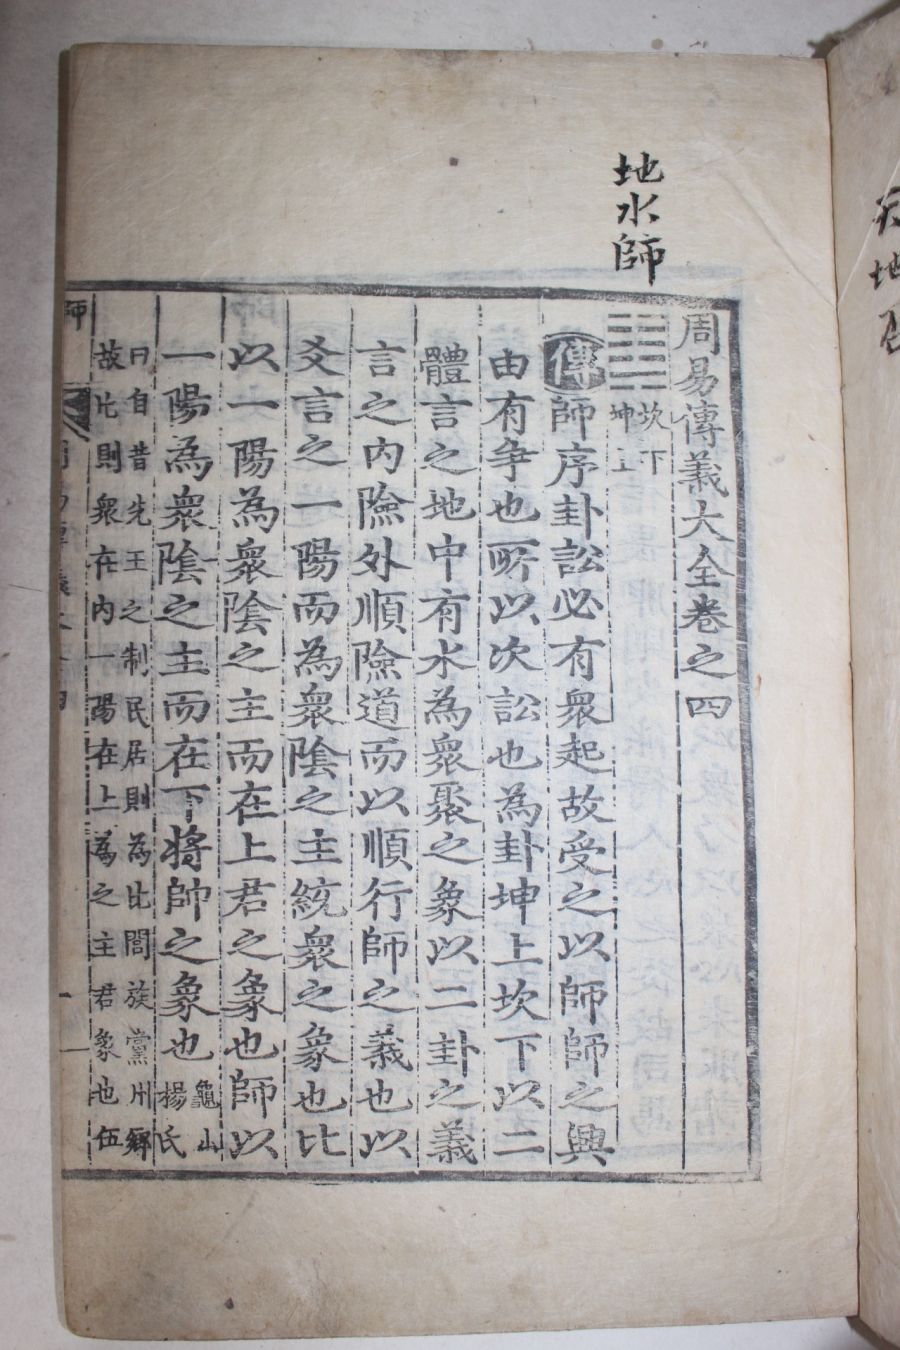 地水師
周易傳義大全卷之四
坎下
坤上
傳師序卦訟必有衆起故受之以師師之興
由有爭也所以次訟也為卦坤上坎下以二
體言之地中有水為衆聚之象以二卦之義
言之內險外順險道而以順行師之義也以
爻言之一陽而為衆陰之主統衆之象也比
以一陽為衆陰之主而在上君之象也師以
一陽為衆陰之主而在下將帥之象也
龜山
楊氏
曰自昔先王之制民居則為比閭族黨州鄉
故比則衆在內一陽在上為之主君象也伍
師
天
地